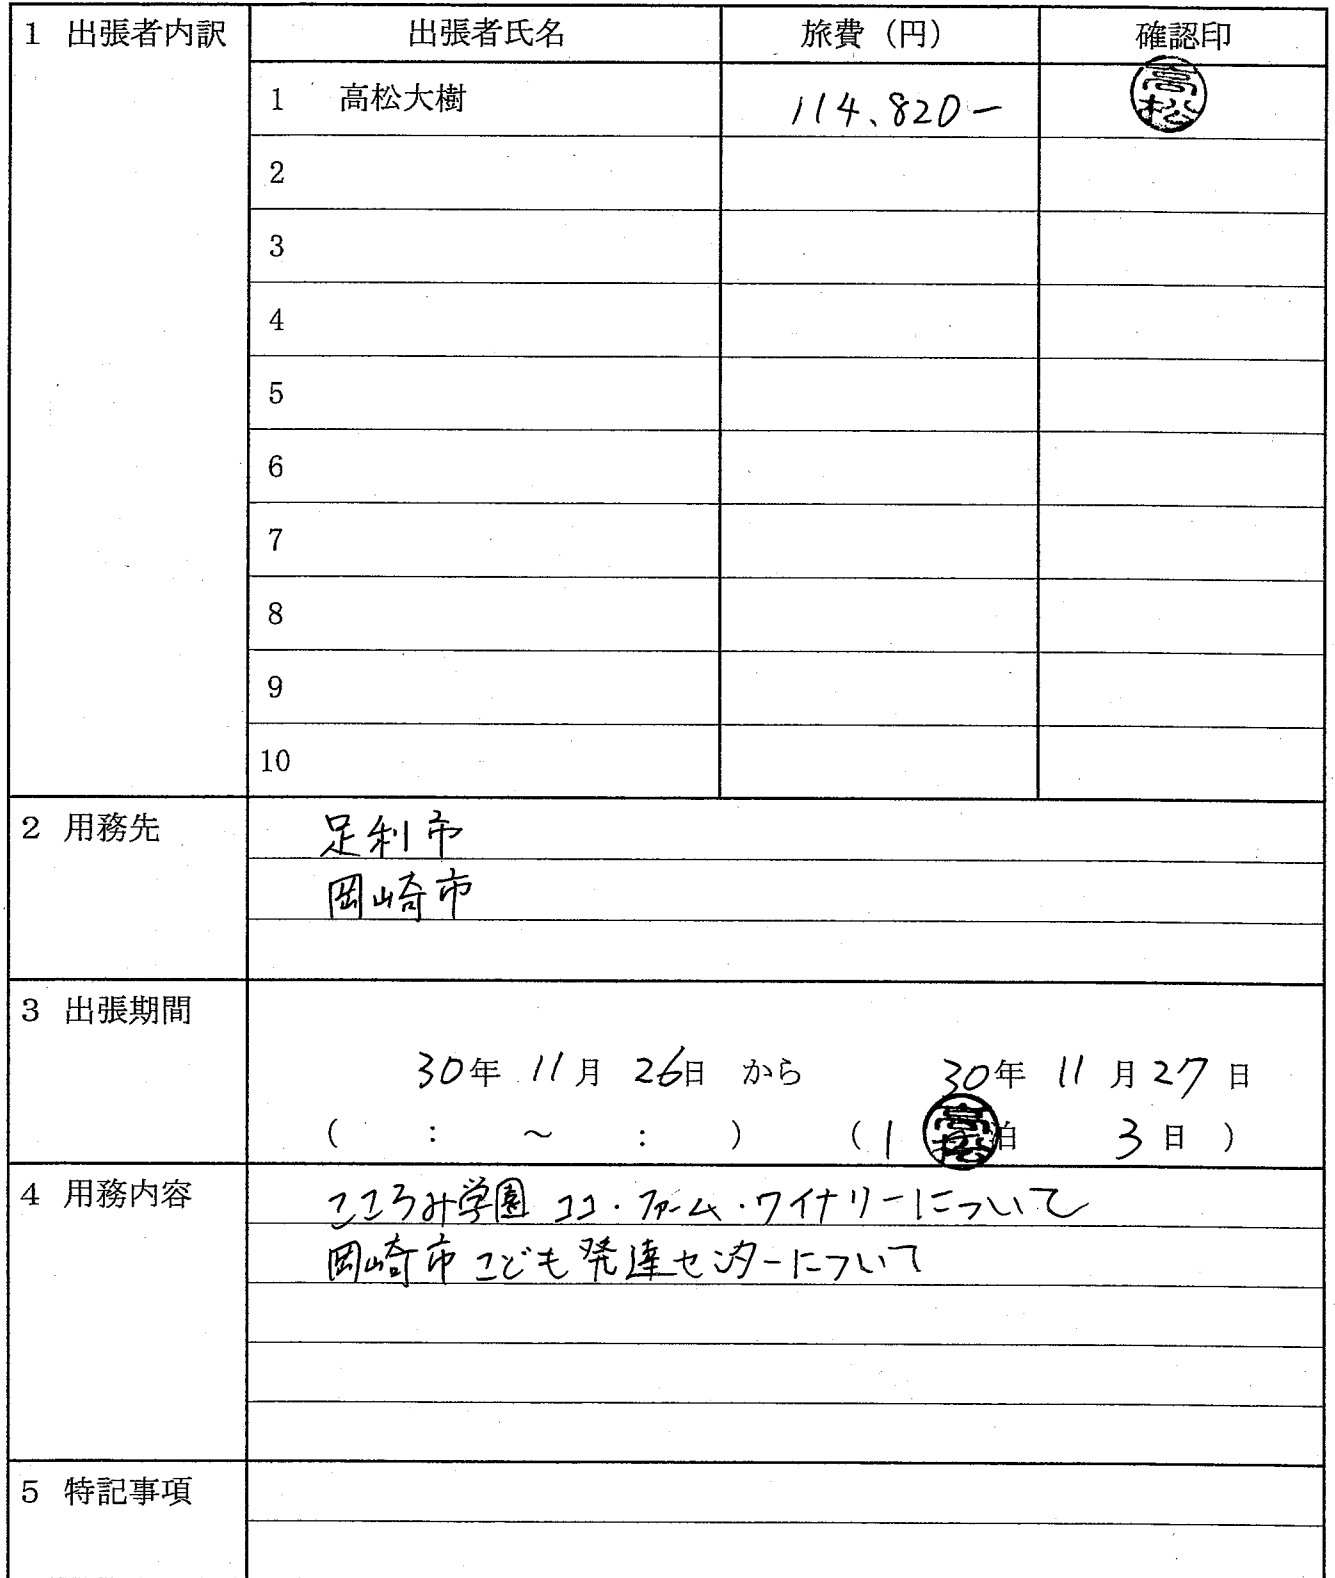 1 出張者内訳 出張者氏名 旅費（円） 確認印
1 高松大樹 114、820－ 高松
2
3
4
5
6
7
8
9
10
2 用務先 足利市
岡崎市
3 出張期間
30年 11月 26日 から 30年 11月 27日
（ ： ～ ： ） （1 高松 泊 3日）
4 用務内容 こころみ学園 ココ・ファーム・ワイナリーについて
岡崎市こども発達センターについて
5 特記事項